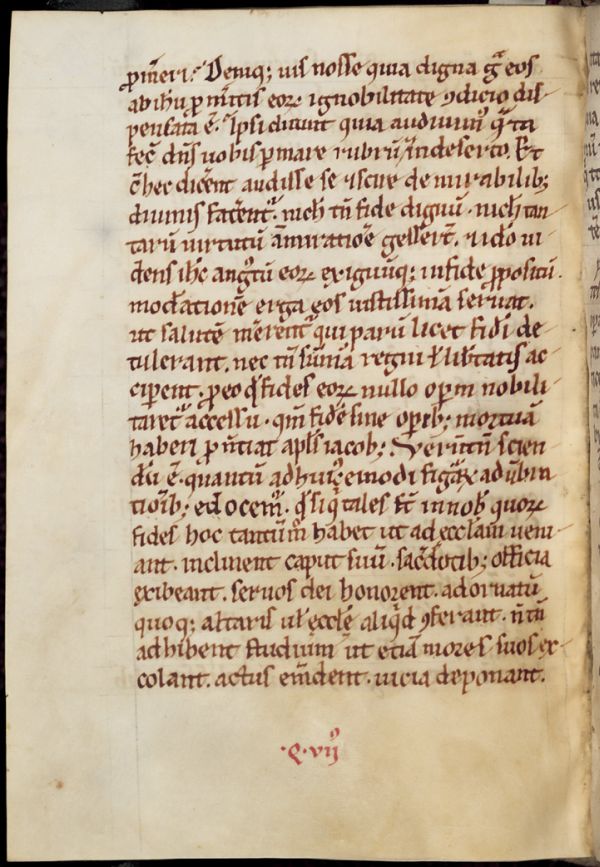 ꝓm̄eri. Deniq; uis nosse quia digna gr̄a eos
ab ih̅u ꝓ m̄tis eoꝝ ignobilitate ꝯdicio dis-
pensata ē. Ipsi dicunt quia audiuimꝰ qᷓnta
fec̄ dn̄s uobis ꝑ mare rubrū ⁊ in deserto. Et
c̄ hec dic̄ent audisse se ⁊ scire de mirabilib;
diuinis fat̄entᷣ. nich̅ tn̄ fide dignū. nich̅ tan-
tarū uirtutū ammiratiōe gesser̄t. ⁊ ido ui-
dens ih̅c ang᷒tū eoꝝ exiguūq; in fide ꝓpositū.
mod̄ationē erga eos iustissimā seruat.
ut salutē mer̄entᷣ qui parū licet fidi de-
tulerant. nec tn̄ sūmā regni ł lib̄tatis ac-
cip̄ent. ꝓ eo qd̄ fides eoꝝ nullo oꝑm nobili-
taretᷣ accessu. qm̄ fidē sine oꝑib; mortuā
haberi ꝓn̄tiat apl̄s iacob; Verūtn̄ scien-
dū ē. quantū ad huiꝰcemodi figᷓꝝ adūbra-
tionib; edocemᷣ. qd̄ si qͥ tales st̄ in nob̅ quoꝝ
fides hoc tantūm̊ habet ut ad eccl̄am ueni-
ant. inclinent caput suū. sac̄dotib; officia
exibeant. seruos dei honorent. ad ornatū
quoq; altaris ul̄ eccl̄e aliqͥd ꝯferant. n̄ tn̄
adhibent studium ut etiā mores suos ex-
colant. actus em̄dent. uicia deponant.
.Q. vijͦ